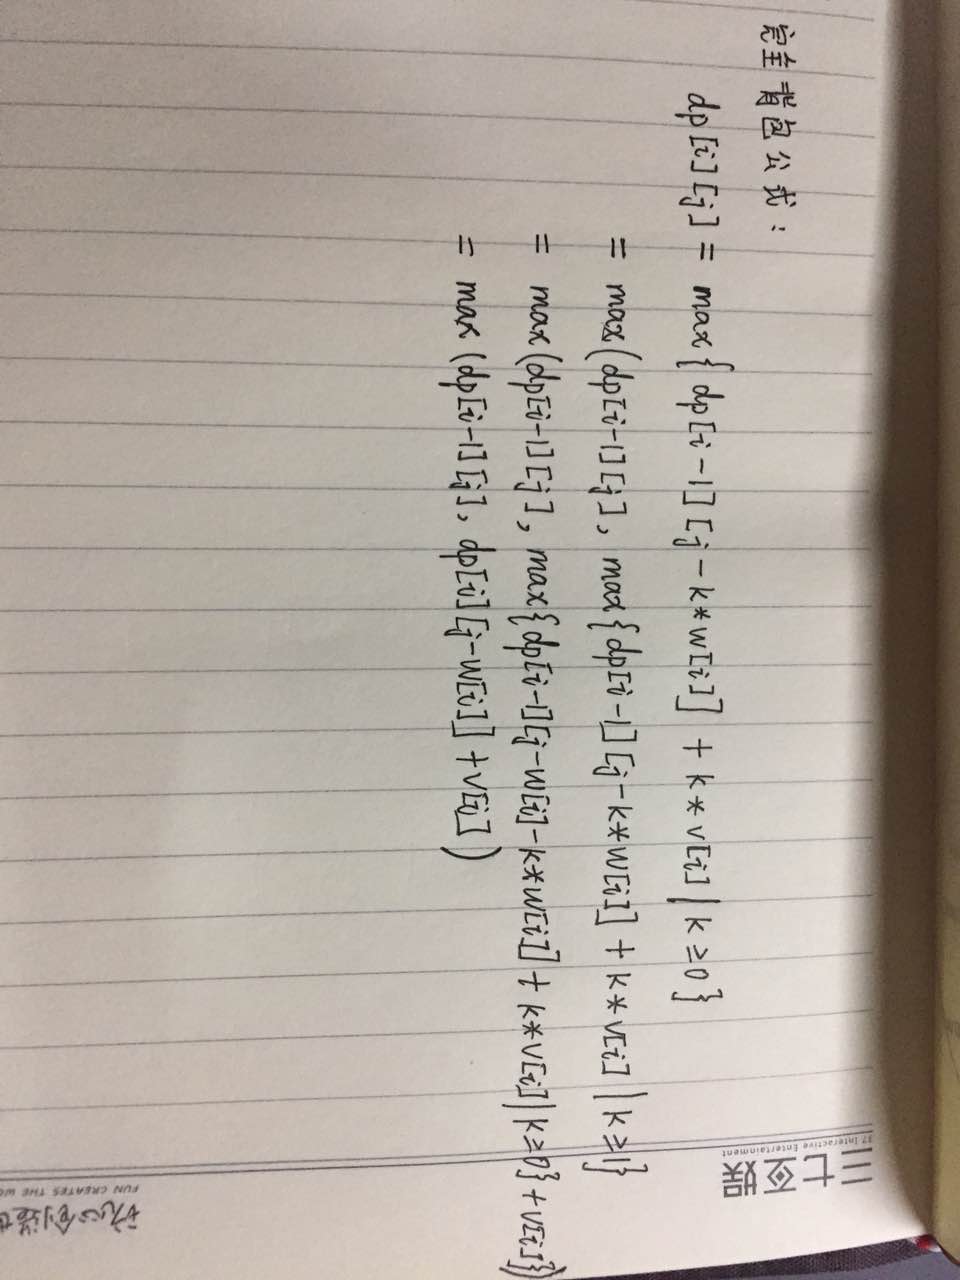 完全背包公式:
dp[i][j] = max{ dp[i-1][j-k*w[i]] + k*v[i] | k ≥ 0 }
= max(dp[i-1][j], max{dp[i-1][j-k*w[i]] + k*v[i] | k ≥ 1}
= max(dp[i-1][j], max{dp[i-1][j-w[i]-k*w[i]] + k*v[i] | k ≥ 0} + v[i]})
= max (dp[i-1][j], dp[i][j-w[i]] + v[i])
三七互娱
37 Interactive Entertainment
FUN CREATES THE